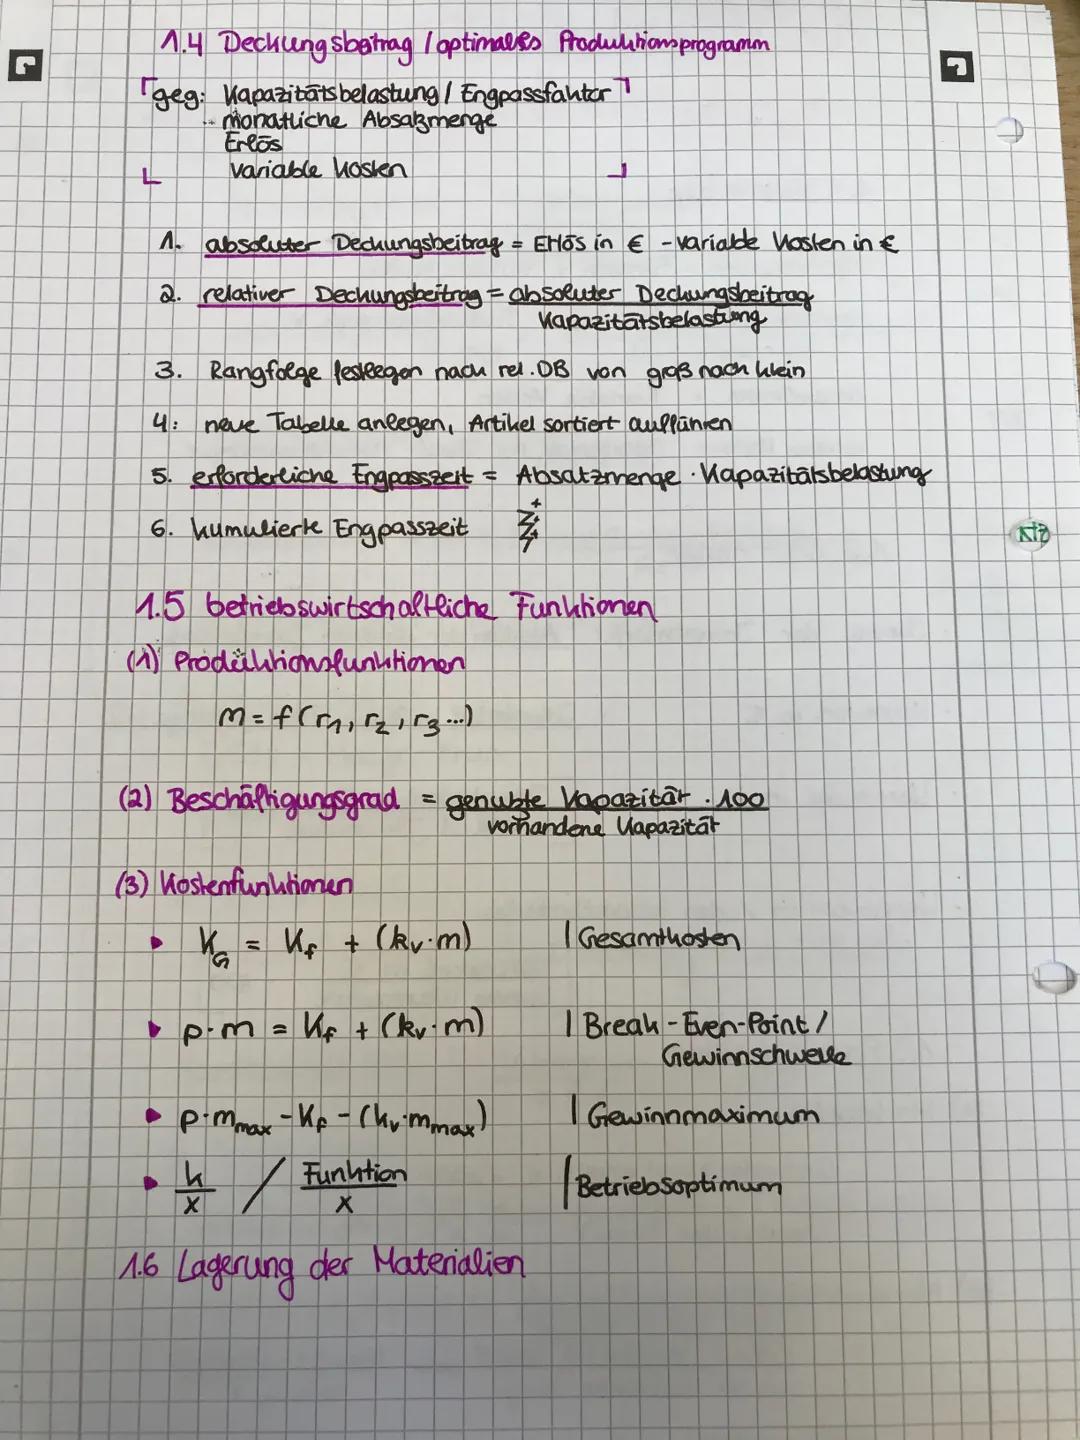 1.4 Deckungsbeitrag / optimales Produktionsprogramm
geg: Kapazitätsbelastung / Engpassfaktor
monatliche Absatzmenge
Erlös
variable Kosten
1. absoluter Deckungsbeitrag = Erlös in € - variable Kosten in €
2. relativer Deckungsbeitrag = absoluter Deckungsbeitrag
Kapazitätsbelastung
3. Rangfolge festlegen nach rel. DB von groß nach klein
4: neue Tabelle anlegen, Artikel sortiert aufführen
5. erforderliche Engpasszeit = Absatzmenge · Kapazitätsbelastung
6. kumulierte Engpasszeit +
1.5 betriebswirtschaftliche Funktionen
(1) Produktionsfunktionen
m = f(r₁, r₂, r₃ ...)
(2) Beschäftigungsgrad = genutzte Kapazität · 100
vorhandene Kapazität
(3) Kostenfunktionen
K_G = K_f + (k_v·m) | Gesamtkosten
p·m = K_f + (k_v·m) | Break-Even-Point /
Gewinnschwelle
p·m_max - K_f - (k_v·m_max) | Gewinnmaximum
k/x / Funktion/x | Betriebsoptimum
1.6 Lagerung der Materialien